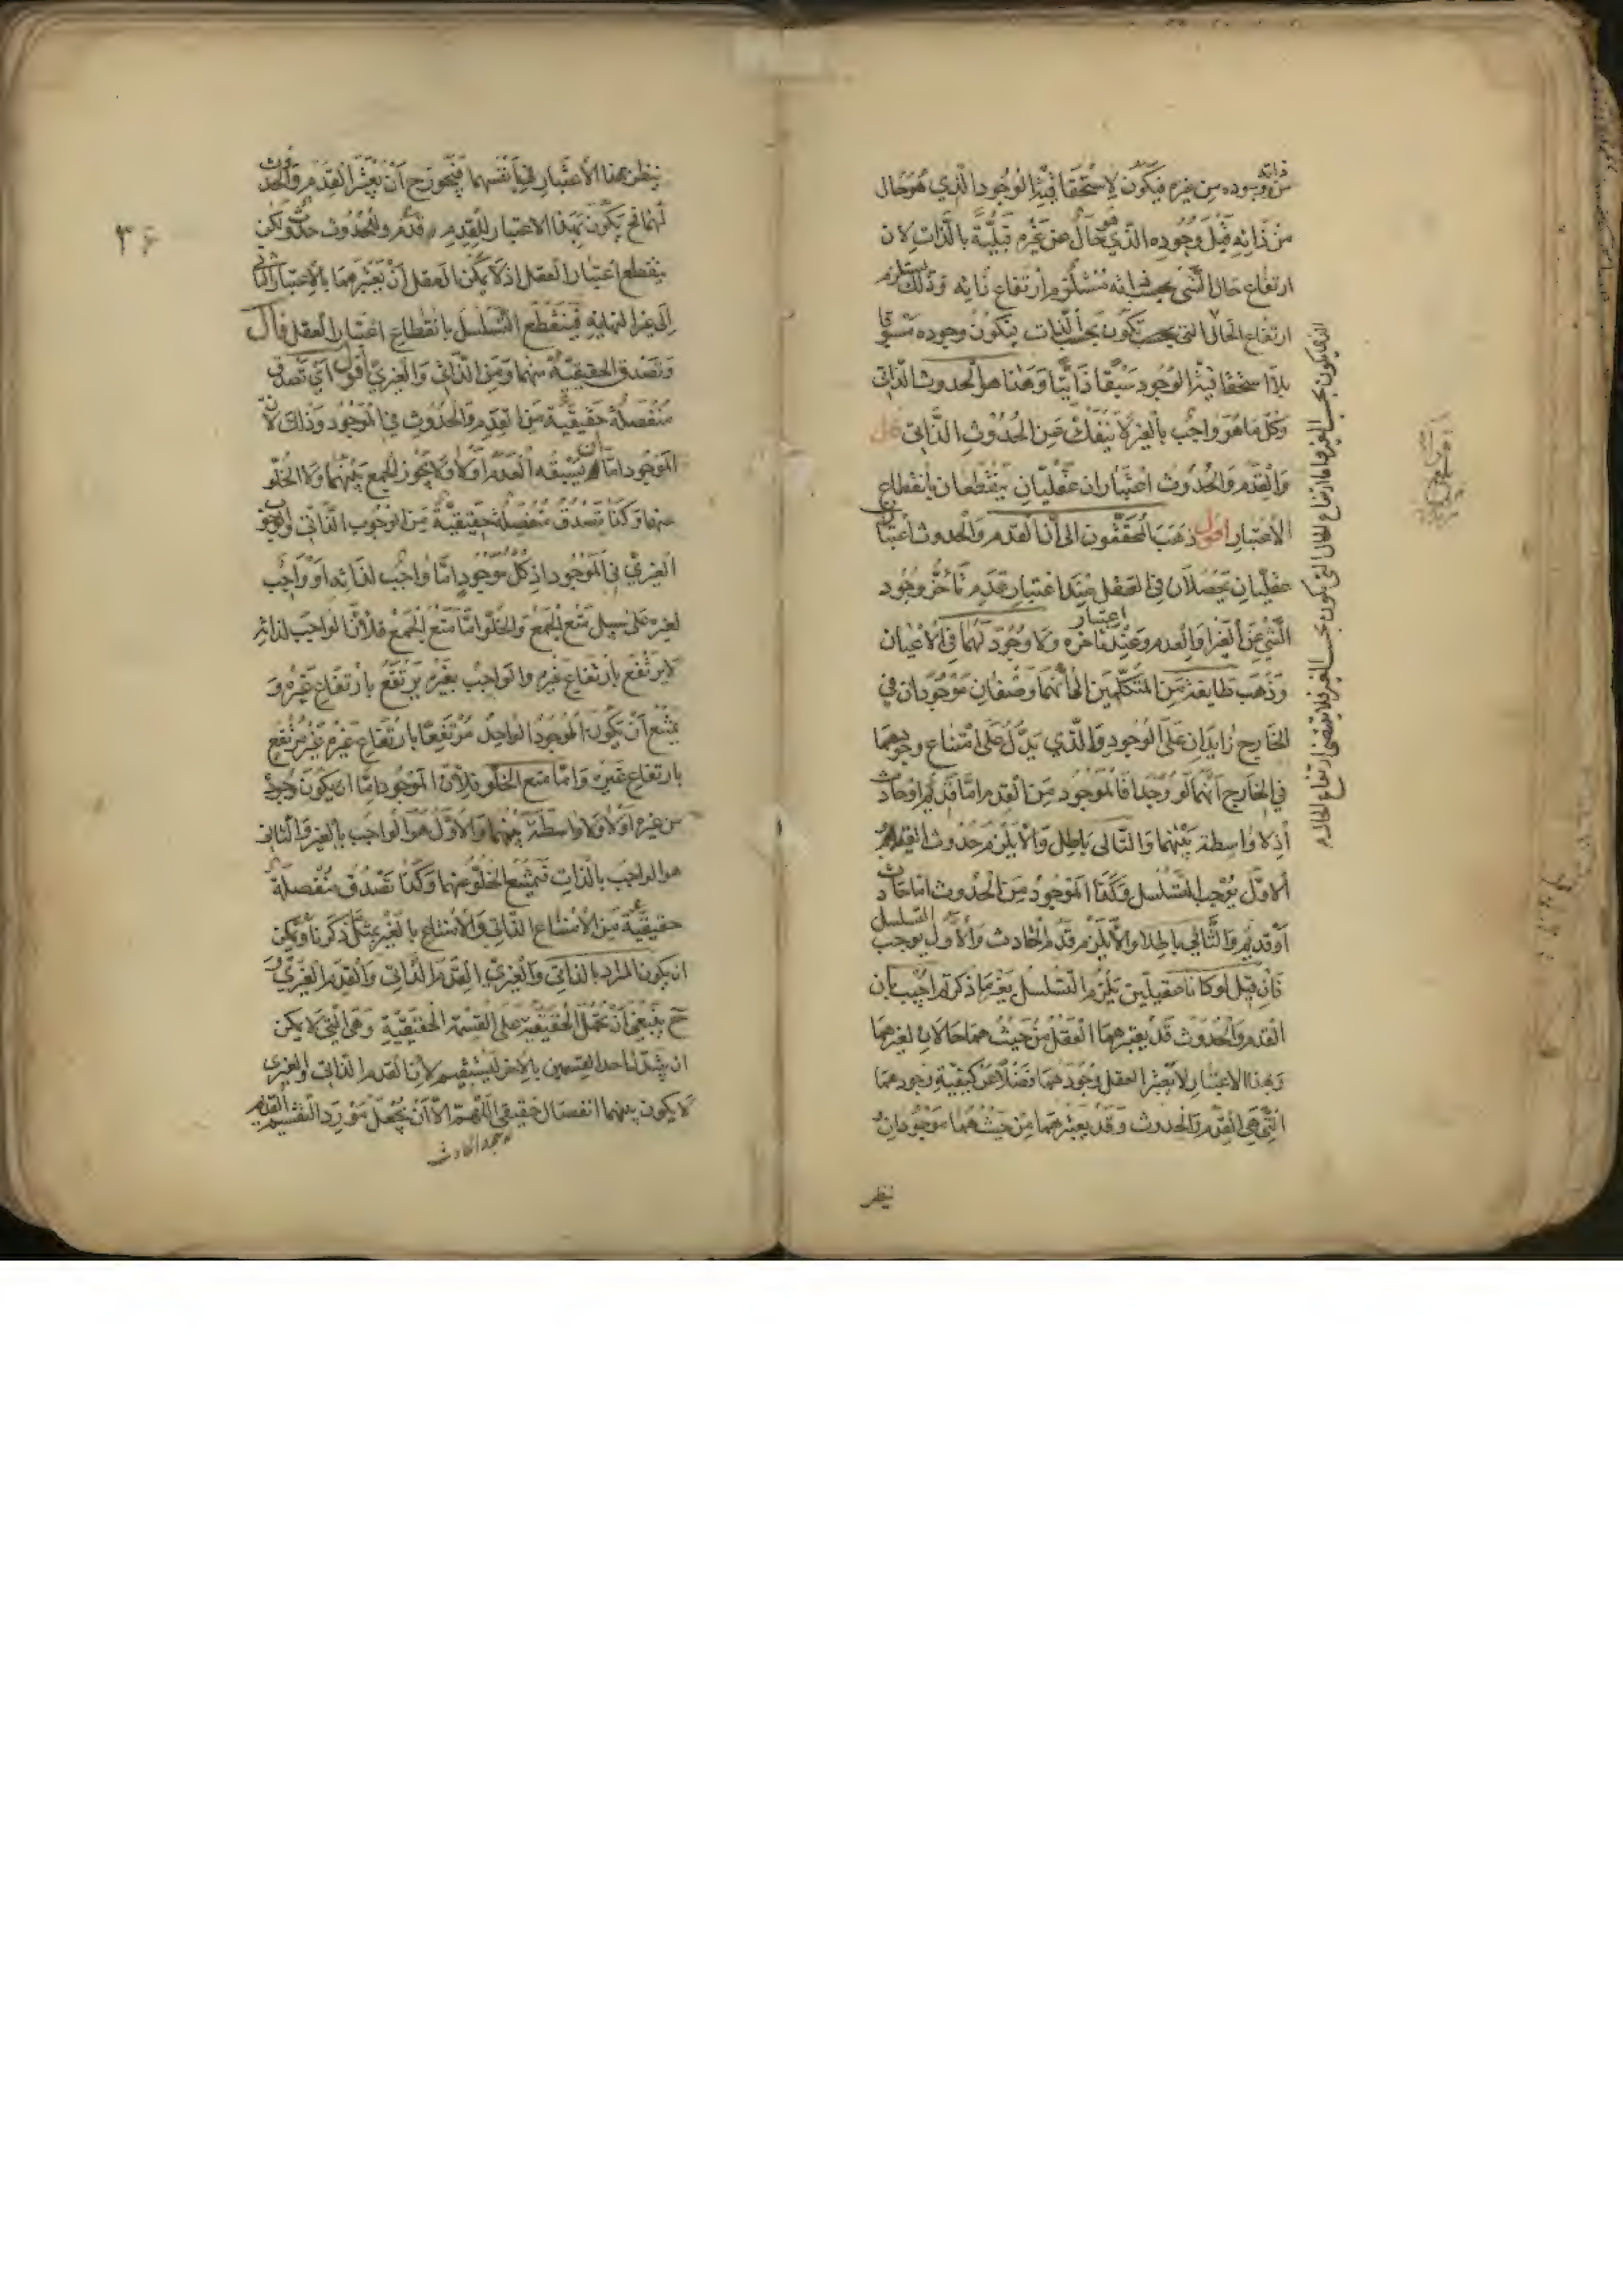 من وجوده من غيره فيكون لا استحقاقية الوجود الذي هو حال
من ذاته قبل وجوده الذي هو حال عن غيره قبلية بالذات لان
ارتفاع حال الشيء بحسب ذاته مستلزم ارتفاع ذاته وذلك يستلزم
ارتفاع الحال التي بحسب تكون بحسب الذات يتكون وجوده مسبوقا
بلا استحقاقية الوجود سبقا ذاتيا وهذا هو الحدوث الذاتي
وكل ما هو واجب بالغير لا ينفك عن الحدوث الذاتي قال
والقدم والحدوث اعتباران عقليان ينقطعان بانقطاع
الاعتبار اقول ذهب المحققون الى ان القدم والحدوث اعتباران
عقليان يحصلان في العقل عند اعتبار عدم تأخر وجود
الشيء عن الغير او العدم وعند اعتبار تأخره ولا وجود لهما في الاعيان
وذهب طايفة من المتكلمين الى انهما وصفان موجودان في
الخارج زايدان على الوجود والذي يدل على امتناع وجودهما
في الخارج انهما لو وجدا فالموجود من القدم اما قديم او حادث
اذ لا واسطة بينهما والتالي باطل والا يلزم حدوث القديم
الاول يوجب التسلسل وكذا الموجود من الحدوث اما حادث
او قديم والتالي باطل والا يلزم قدم الحادث والاول يوجب التسلسل
فان قيل لو كانا عقليين يلزم التسلسل بغير ما ذكرتم اجيب بان
القدم والحدوث قد يعتبرهما العقل من حيث هما حالان لغيرهما
وبهذا الاعتبار لا يعتبر العقل وجودهما فضلا عن كيفية وجودهما
التي هي القدم والحدوث وقد يعتبرهما من حيث هما موجودان
ينظر
ينظر بهذا الاعتبار في انفسهما فيجوز ح ان يعتبر القدم والحدوث
لهما فح يكون بهذا الاعتبار للقدم قدم وللحدوث حدوث ولكن
ينقطع اعتبار العقل اذ لا يمكن العقل ان يعتبرهما بالاعتبار الثاني
الى غير النهاية فينقطع التسلسل بانقطاع اعتبار العقل قال
وتصدق الحقيقية منهما ومن الذاتي والغيري اقول اي تصدق
منفصلة حقيقية من القدم والحدوث في الموجود وذلك لان
الموجود اما ان يسبقه العدم او لا ولا يجوز الجمع بينهما ولا الخلو
عنهما وكذا تصدق منفصلة حقيقية من الوجوب الذاتي والوجوب
الغيري في الموجود اذ كل موجود اما واجب لذاته او واجب
لغيره على سبيل منع الجمع والخلو اما منع الجمع فلان الواجب لذاته
لا يرتفع بارتفاع غيره والواجب بغيره يرتفع بارتفاع غيره و
يمتنع ان يكون الموجود الواحد مرتفعا بارتفاع غيره غير مرتفع
بارتفاع غيره واما منع الخلو فلان الموجود اما ان يكون وجوده
من غيره او لا ولا واسطة بينهما والاول هو الواجب بالغير والثاني
هو الواجب بالذات فيمتنع الخلو عنهما وكذا تصدق منفصلة
حقيقية من الامتناع الذاتي والامتناع بالغير بمثل ما ذكرنا ويمكن
ان يكون المراد بالذاتي والغيري القدم الذاتي والقدم الغيري و
ح ينبغي ان تحمل الحقيقية على القسمة الحقيقية وهي التي لا يمكن
ان يتبدل احد القسمين بالاخر ليستقيم لان القدم الذاتي والغيري
لا يكون بينهما انفصال حقيقي اللهم الا ان يجعل مورد التقسيم القديم